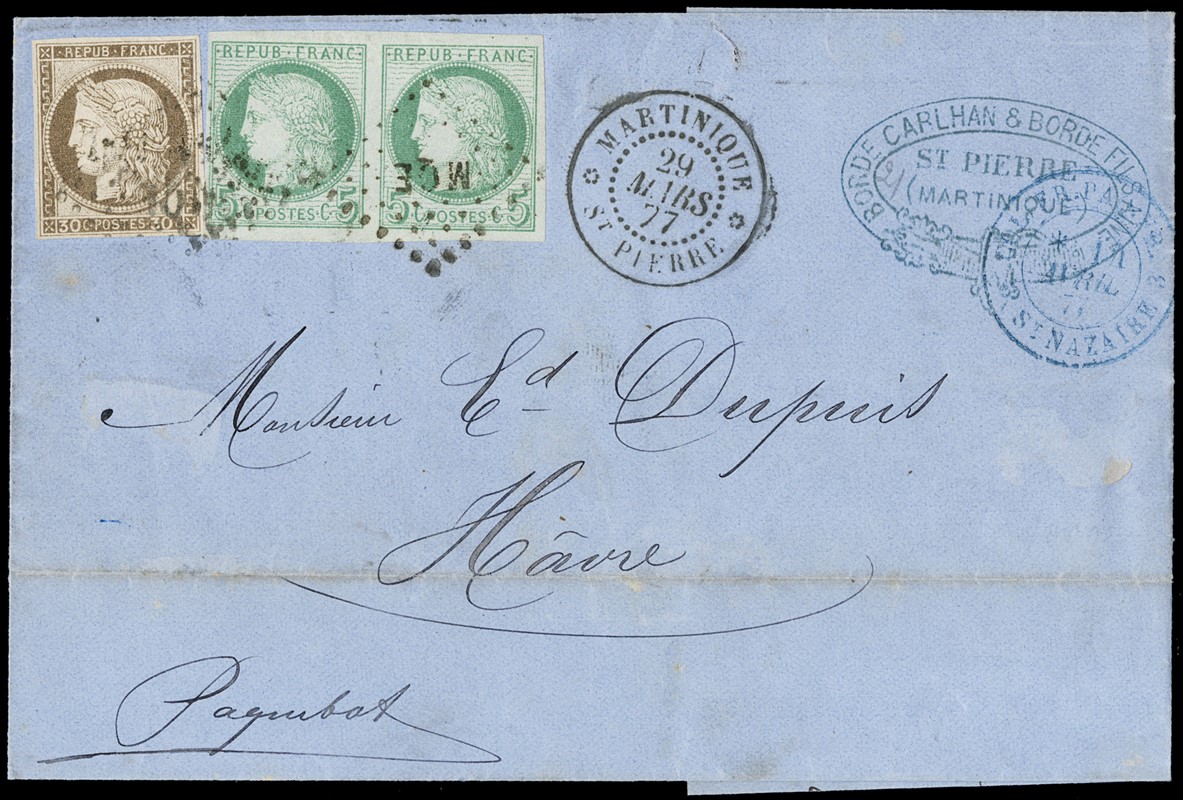 REPUB · FRANC
30 C · POSTES · 30
REPUB · FRANC
5 C · POSTES · C 5
REPUB · FRANC
5 C · POSTES · C 5
MQE
MARTINIQUE
29
MARS
77
ST PIERRE
BORDE CARLHAN & BORDE FILS
ST PIERRE
(MARTINIQUE)
AVRIL
ST NAZAIRE 3
Monsieur Ed Dupuis
Hâvre
Paquebot